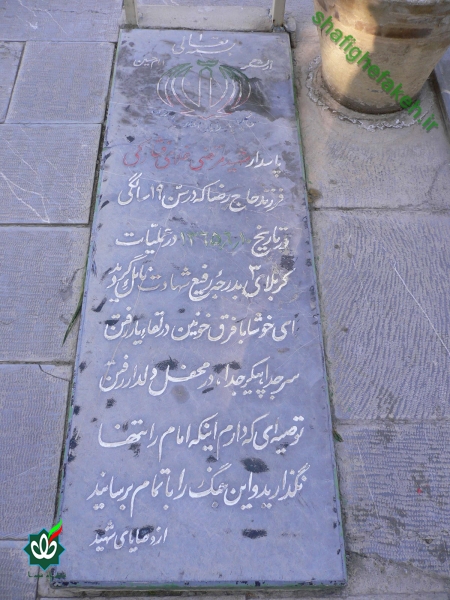 بسمه تعالی
پاسدار
فرزند حاج رضا که در سن ۱۹ سالگی
در تاریخ در عملیات
کربلای ۳ بدرجه رفیع شهادت نایل گردید
ای خوشا با فرق خونین در لقاء یار رفتن
سر جدا پیکر جدا، در محفل دلدار رفتن
توصیه‌ای که دارم اینکه امام را تنها
نگذارید و این جنگ را با تمام برسانید
از وصایای شهید
shafighefakeh.ir